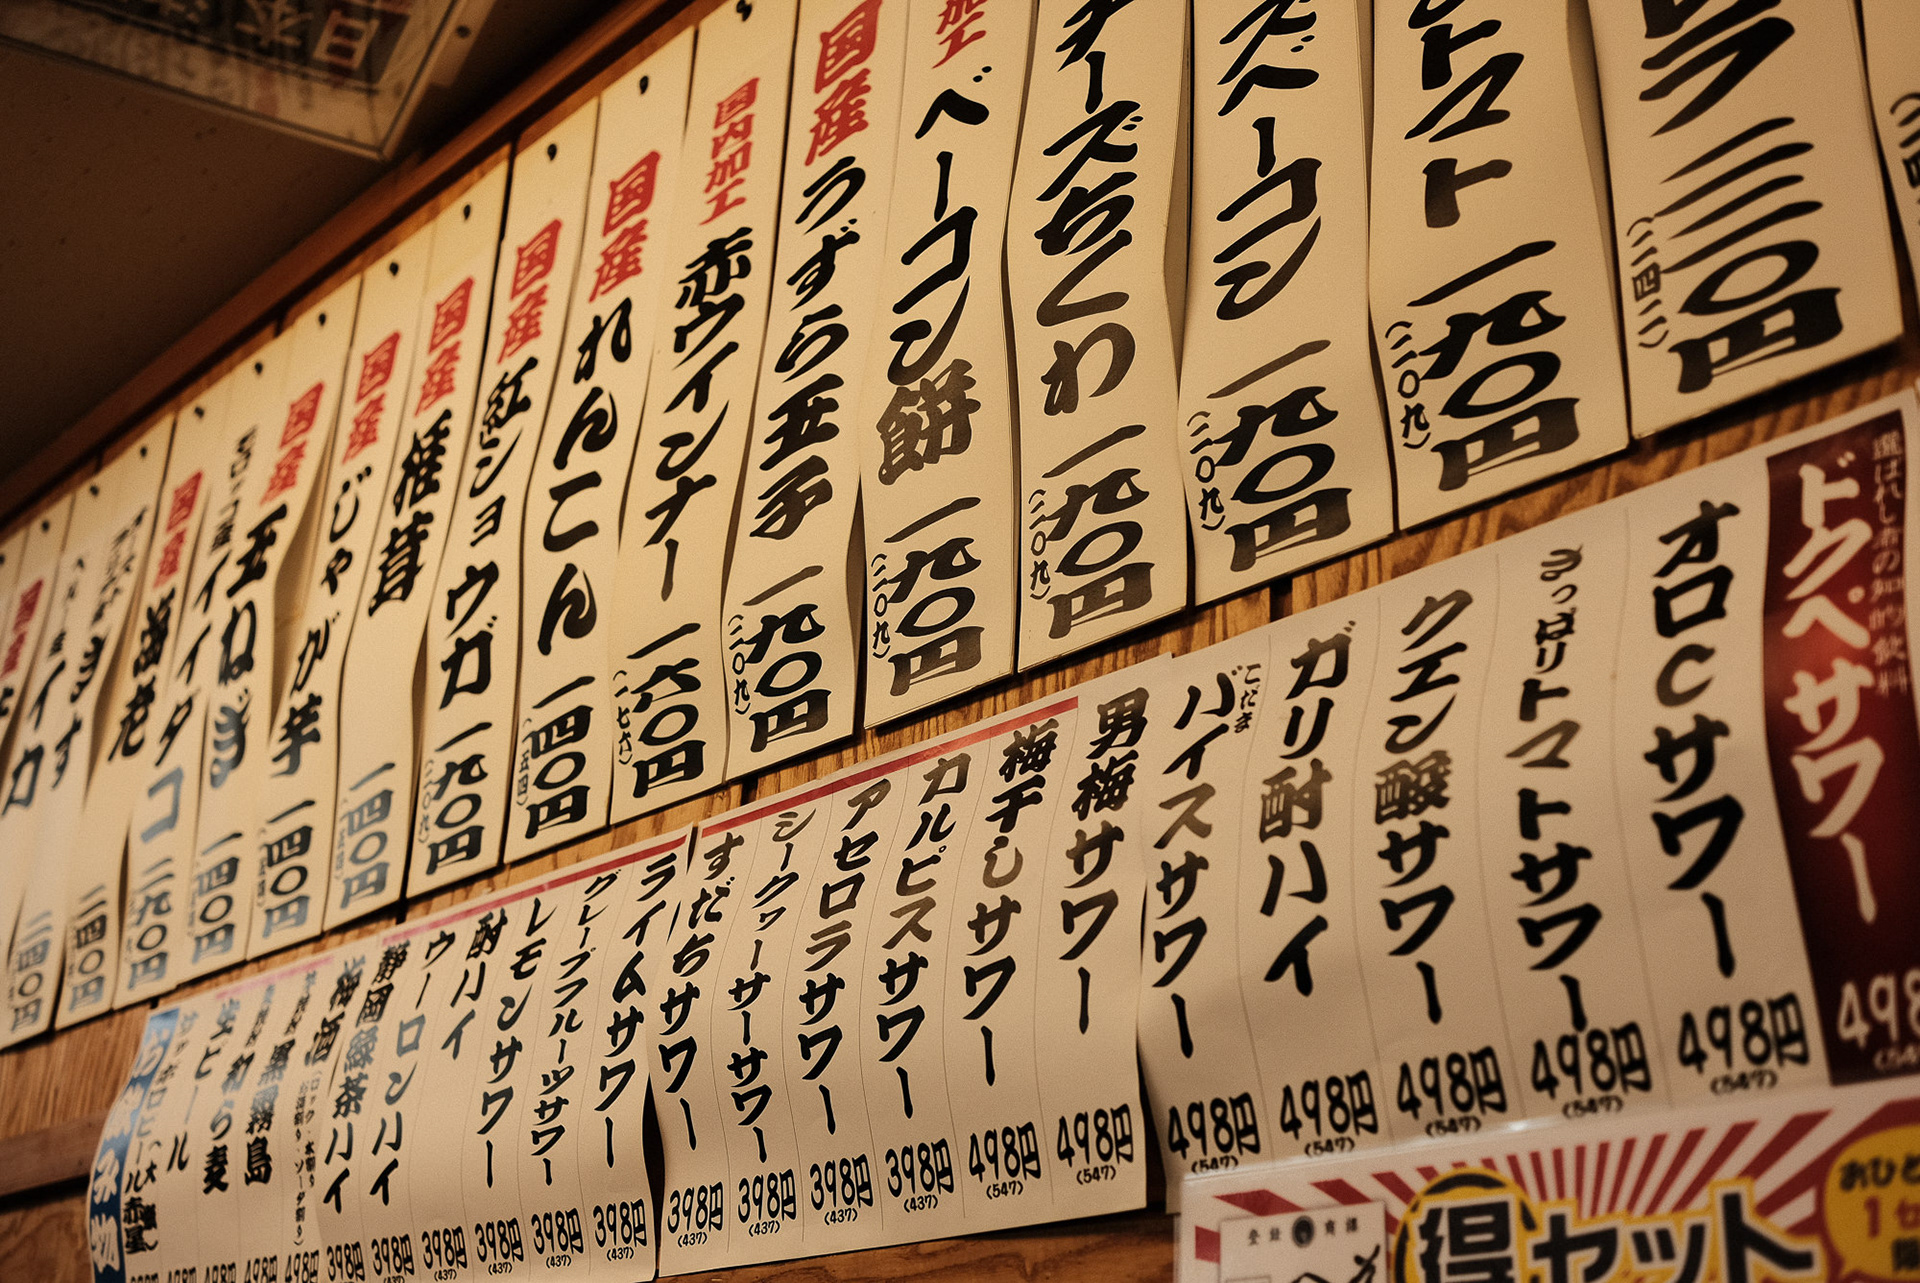 ラ 二二〇円
(二四二)
トマト 一九〇円
(二〇九)
ズベーコン 一九〇円
(二〇九)
チーズちくわ 一九〇円
(二〇九)
加工 ベーコン餅 一九〇円
(二〇九)
国産 うずら玉子 一九〇円
(二〇九)
国内加工 赤ウインナー 一六〇円
(一七六)
国産 れんこん 一四〇円
(一五四)
国産 紅ショウガ 一九〇円
(二〇九)
国産 椎茸 一四〇円
国産 じゃがが芋 一四〇円
国産 玉ねぎ 一四〇円
イイダコ
国産 海老
きす 一四〇円
イカ 一四〇円
選ばれし者の知的飲料
ドクペサワー
オロCサワー 498円
(547)
さっぱりトマトサワー 498円
(547)
クエン酸サワー 498円
(547)
ガリ酎ハイ 498円
(547)
こだま
バイスサワー 498円
(547)
男梅サワー 498円
(547)
梅干しサワー 498円
(547)
カルピスサワー 398円
(437)
アセロラサワー 398円
(437)
シークヮーサーサワー 398円
(437)
すだちサワー 398円
(437)
ライムサワー 398円
(437)
グレープフルーツサワー 398円
(437)
レモンサワー 398円
(437)
酎ハイ 398円
(437)
ウーロンハイ 398円
(437)
静岡緑茶ハイ 398円
梅酒 498円
(ロック・水割り
お湯割り・ソーダ割り)
黒霧島 498円
和ら麦 498円
生ビール 498円
サッポロビール赤星
得セット
おひと